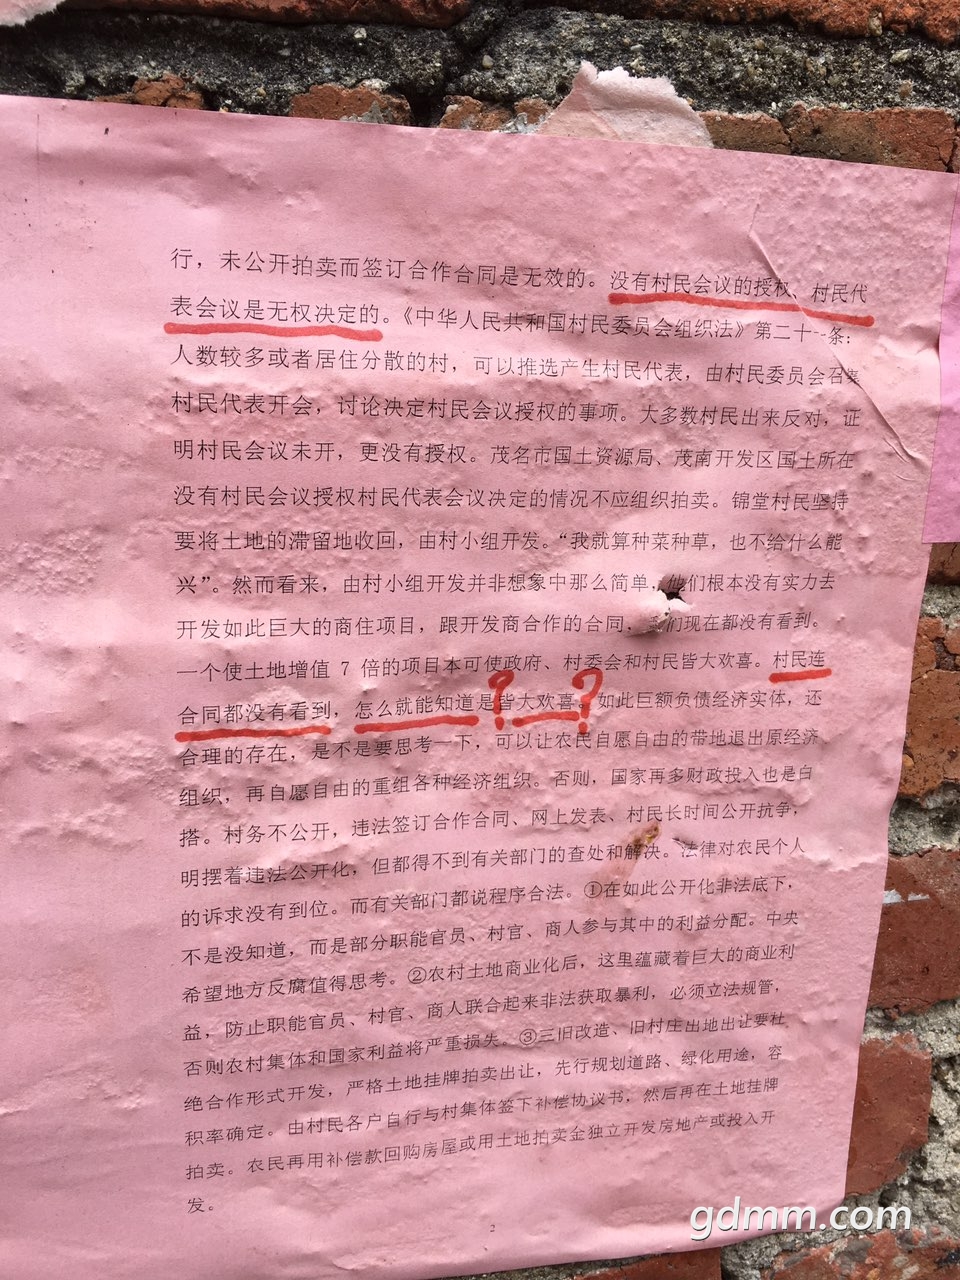 行，未公开拍卖而签订合作合同是无效的。没有村民会议的授权、村民代
表会议是无权决定的。《中华人民共和国村民委员会组织法》第二十一条：
人数较多或者居住分散的村，可以推选产生村民代表，由村民委员会召集
村民代表开会，讨论决定村民会议授权的事项。大多数村民出来反对，证
明村民会议未开，更没有授权。茂名市国土资源局、茂南开发区国土所在
没有村民会议授权村民代表会议决定的情况不应组织拍卖。锦堂村民坚持
要将土地的滞留地收回，由村小组开发。“我就算种菜种草，也不给什么能
兴”。然而看来，由村小组开发并非想象中那么简单，他们根本没有实力去
开发如此巨大的商住项目，跟开发商合作的合同，我们现在都没有看到。
一个使土地增值 7 倍的项目本可使政府、村委会和村民皆大欢喜。村民连
合同都没有看到，怎么就能知道是皆大欢喜。如此巨额负债经济实体，还
? ?
合理的存在，是不是要思考一下，可以让农民自愿自由的带地退出原经济、
组织，再自愿自由的重组各种经济组织。否则，国家再多财政投入也是白
搭。村务不公开，违法签订合作合同、网上发表、村民长时间公开抗争，
明摆着违法公开化，但都得不到有关部门的查处和解决。法律对农民个人
的诉求没有到位。而有关部门都说程序合法。①在如此公开化非法底下，
不是没知道，而是部分职能官员、村官、商人参与其中的利益分配。中央
希望地方反腐值得思考。②农村土地商业化后，这里蕴藏着巨大的商业利
益，防止职能官员、村官、商人联合起来非法获取暴利，必须立法规管，
否则农村集体和国家利益将严重损失。③三旧改造、旧村庄出地出让要杜
绝合作形式开发，严格土地挂牌拍卖出让，先行规划道路、绿化用途，容
积率确定。由村民各户自行与村集体签下补偿协议书，然后再在土地挂牌
拍卖。农民再用补偿款回购房屋或用土地拍卖金独立开发房地产或投入开
发。
2
gdmm.com